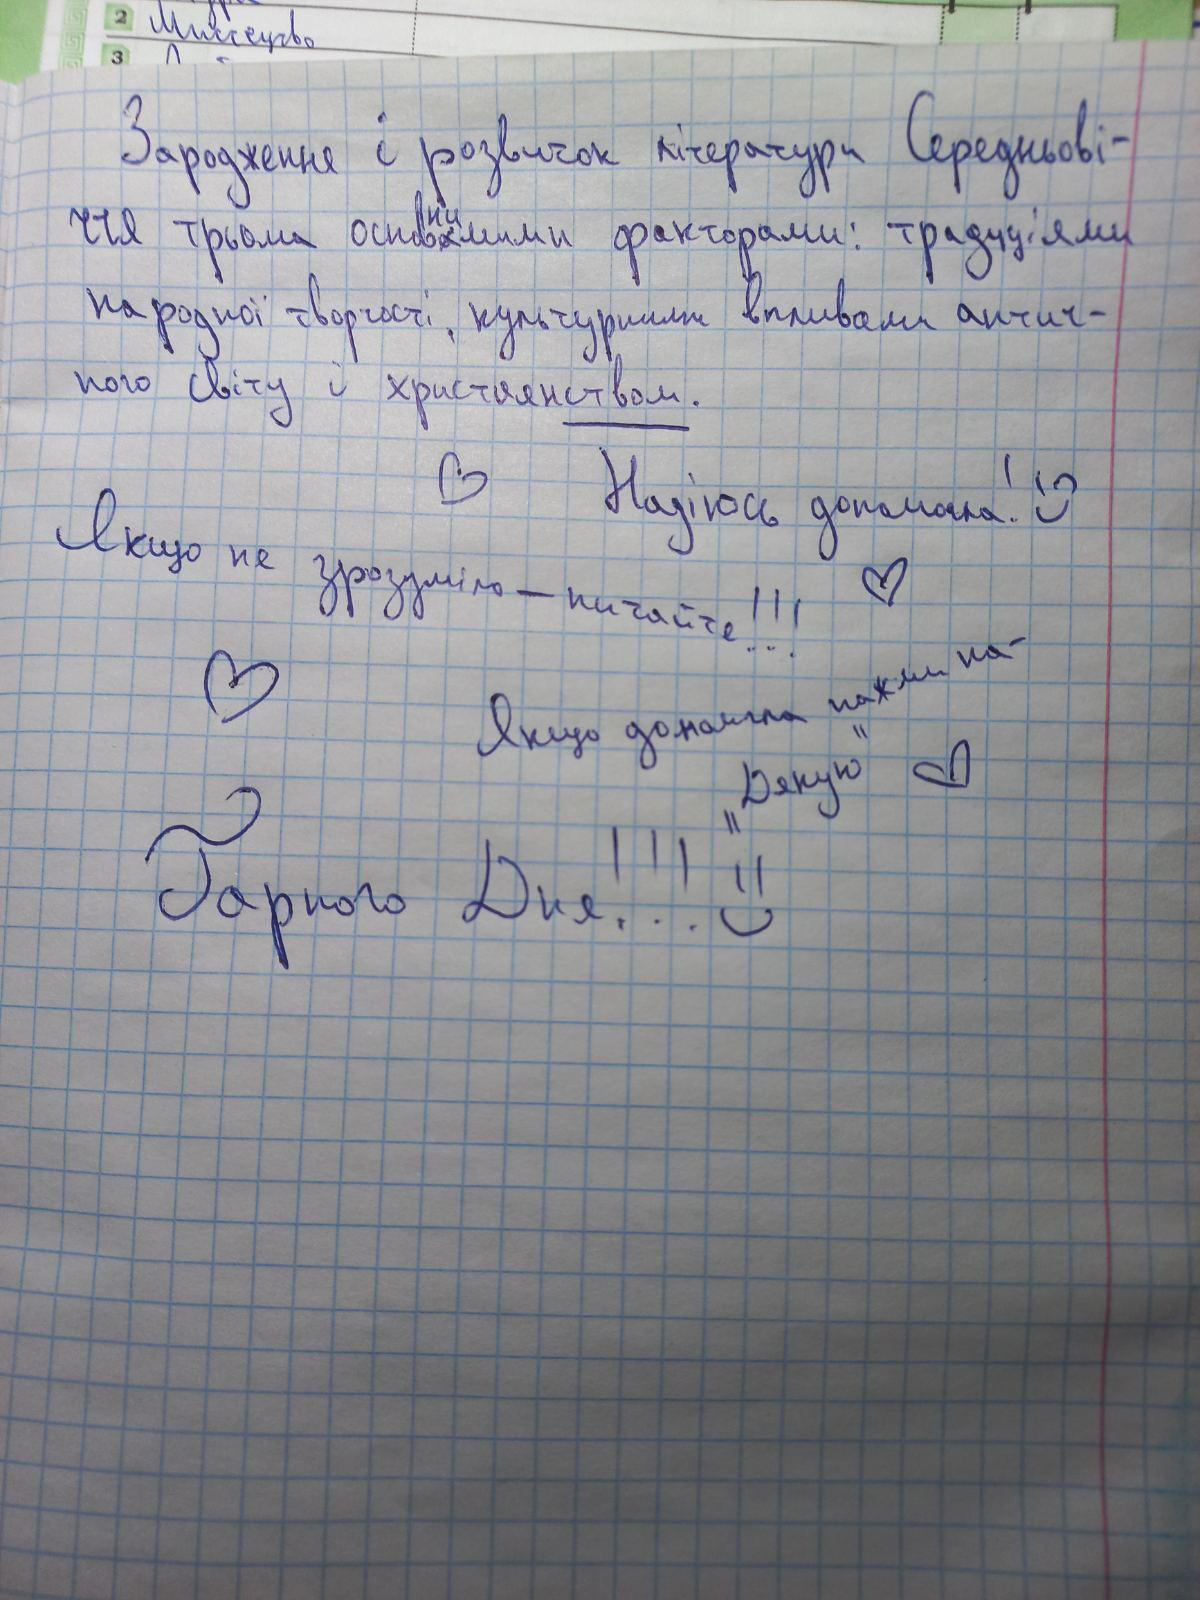 2 Мистецтво
3
Зародження і розвиток літератури Середньові-
ччя трьома основними факторами: традиціями
народної творчості, культурними впливами антич-
ного світу і християнством.
Надіюсь допомогла! :)
Якщо не зрозуміло — питайте!!!
Якщо допомгла нажми на-
"Дякую"
Гарного Дня!!! :)